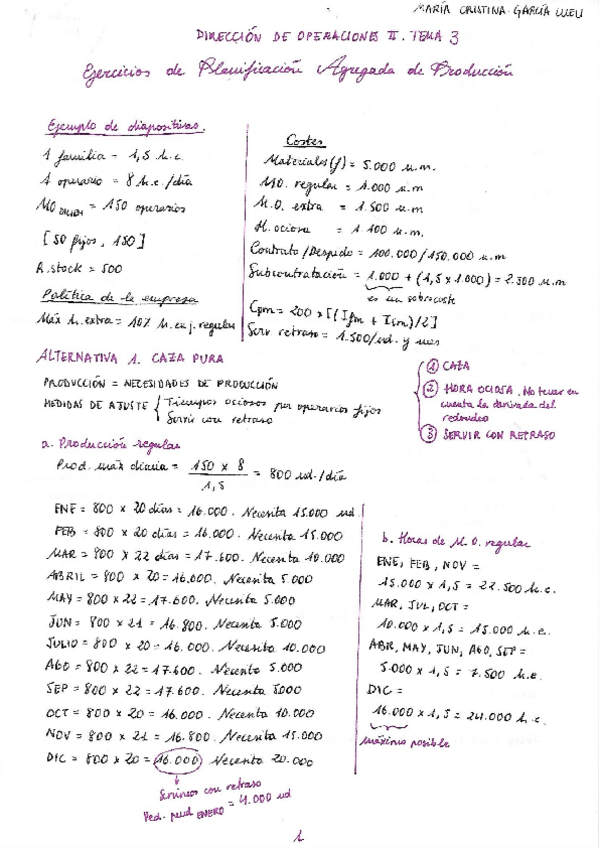 MARÍA CRISTINA GARCÍA
DIRECCIÓN DE OPERACIONES II. TEMA 3
Ejercicios de Planificación Agregada de Producción
Ejemplo de diapositivas.
1 familia = 1,5 h.e.
1 operario = 8 h.e./día
= 150 operarios
[50 fijos, 150]
R.stock = 500
Política de la empresa
Máx h.extra = 10% h. en j. regular
Costes
Materiales(f) = 5.000 u.m.
MO. regular = 1.000 u.m.
M.O. extra = 1.500 u.m.
H. ociosa = 1.100 u.m.
Contrato/Despido = 100.000/150.000 u.m
Subcontratación = 1.000 + (1,5 x 1.000) = 2.500 u.m
es un sobrecoste
Cpm = 200 x [(Ifm + Iim)/2]
Serv. retraso = 1.500/ud. y mes
ALTERNATIVA 1. CAZA PURA
PRODUCCIÓN = NECESIDADES DE PRODUCCIÓN
MEDIDAS DE AJUSTE { Tiempos ociosos por operarios fijos
Servir con retraso
① CAZA
② HORA OCIOSA. No tener en
cuenta la derivada del
redondeo
③ SERVIR CON RETRASO
a. Producción regular
Prod. máx diaria = 150 x 8 / 1,5 = 800 ud./día
ENE = 800 x 20 días = 16.000. Necesita 15.000 ud.
FEB = 800 x 20 días = 16.000. Necesita 15.000
MAR = 800 x 22 días = 17.600. Necesita 10.000
ABRIL = 800 x 20 = 16.000. Necesita 5.000
MAY = 800 x 22 = 17.600. Necesita 5.000
JUN = 800 x 21 = 16.800. Necesita 5.000
JULIO = 800 x 20 = 16.000. Necesita 10.000
AGO = 800 x 22 = 17.600. Necesita 5.000
SEP = 800 x 22 = 17.600. Necesita 5000
OCT = 800 x 20 = 16.000. Necesita 10.000
NOV = 800 x 21 = 16.800. Necesita 15.000
DIC = 800 x 20 = 16.000 Necesita 20.000
Servimos con retraso
Ped. pend ENERO = 4.000 ud
b. Horas de M.O. regular
ENE, FEB, NOV =
15.000 x 1,5 = 22.500 h.e.
MAR, JUL, OCT =
10.000 x 1,5 = 15.000 h.e.
ABR, MAY, JUN, AGO, SEP =
5.000 x 1,5 = 7.500 h.e.
DIC =
16.000 x 1,5 = 24.000 h.e.
máximo posible
1